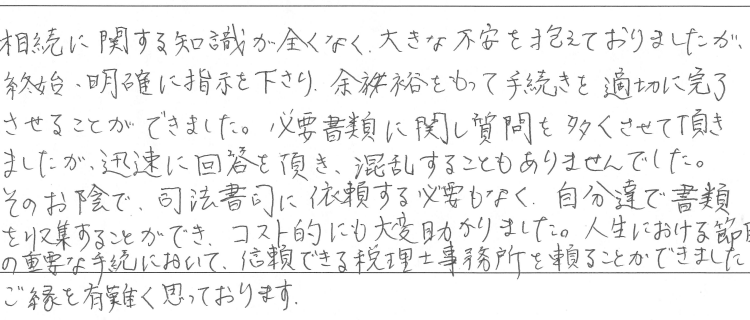 相続に関する知識が全くなく、大きな不安を抱えておりましたが、
終始、明確に指示を下さり、余裕をもって手続きを適切に完了
させることができました。必要書類に関し質問を多くさせて頂き
ましたが、迅速に回答を頂き、混乱することもありませんでした。
そのお陰で、司法書司に依頼する必要もなく、自分達で書類
を収集することができ、コスト的にも大変助かりました。人生における節目
の重要な手続において、信頼できる税理士事務所を頼ることができました
ご縁を有難く思っております。